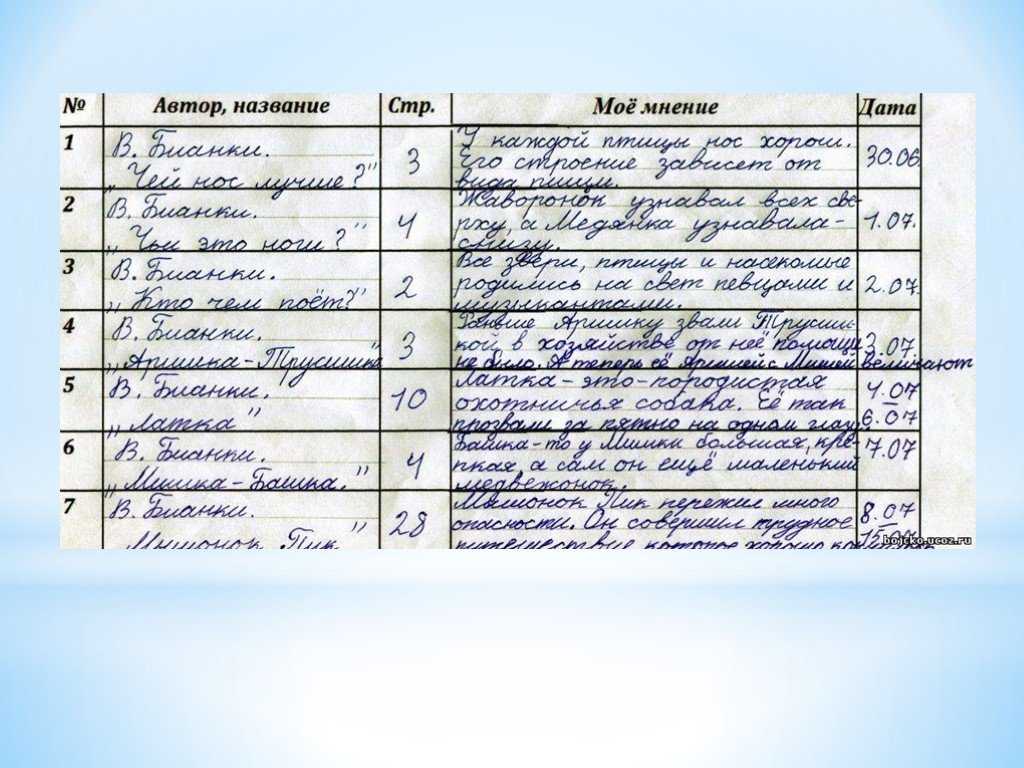 № Автор, название Стр. Моё мнение Дата
1 В. Бианки. „Чей нос лучше?" 3 У каждой птицы нос хорош.
Его строение зависет от
вида пищи. 30.06
2 В. Бианки. „Чьи это ноги?" 4 Жаворонок узнавал всех све-
рху, а Медянка узнавала-
снизу. 1.07.
3 В. Бианки. „Кто чем поёт?" 2 Все звери, птицы и насекомые
родились на свет певцами и
музыкантами. 2.07
4 В. Бианки. „Аришка-Трусишка" 3 Раньше Аришку звали Трусиш-
кой в хозяйстве от неё помощи
не было. А теперь её Аришей с Мишей величают 3.07
5 В. Бианки. „Латка" 10 Латка-это-породистая
охотничья собака. Её так
прозвали за пятно на одном глазу. 4.07
6.07
6 В. Бианки. „Мишка-Башка." 4 Башка-то у Мишки большая, кре-
пкая, а сам он ещё маленький
медвежонок. 7.07
7 В. Бианки. Мышонок Пик " 28 Мышонок Пик пережил много
опасности. Он совершил трудное
путешествие которое хорошо 8.07
bojcko.ucoz.ru